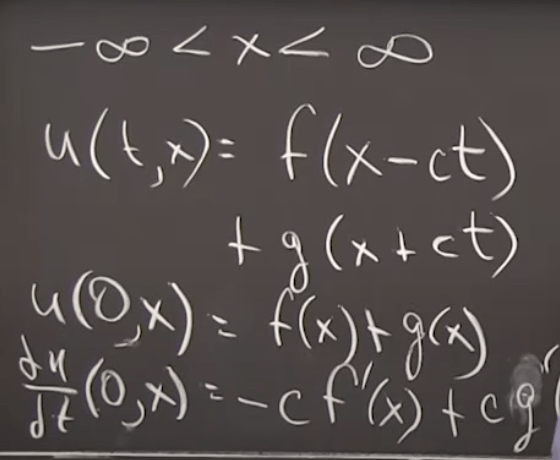 -∞ < x < ∞
u(t,x) = f(x-ct)
+ g(x+ct)
u(0,x) = f(x) + g(x)
du/dt (0,x) = -c f'(x) + c g'(